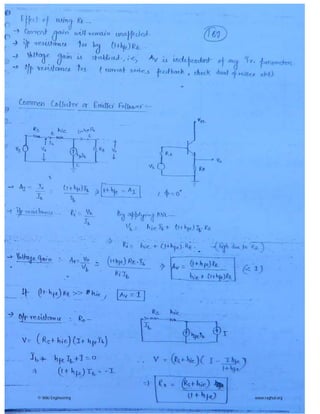 Effect of using RE —
(182)
→ Current gain will remain unaffected.
→ i/p resistance ↑es by (1+hfe)RE.
→ Voltage gain is stabilised, i.e., Av is independent of any Tr. parameters
→ o/p resistance ↑es (current series feedback,
Common Collector or Emitter Follower —
→ AI = Io/Ib = (1+hfe)Ib/Ib ⇒ 1+hfe = AI , φ = 0°
→ i/p resistance — Ri = Vb/Ib By applying KVL —
Vb = hie Ib + (1+hfe) Ib RE
⇒ Ri = hie + (1+hfe) RE. — (high due to RE)
→ Voltage gain — Av = Vo/Vb = (1+hfe) RE Ib / Ri Ib ⇒ Av = (1+hfe) RE / hie + (1+hfe) RE (< 1)
If (1+hfe) RE >> hie, Av = 1
→ o/p resistance : Ro —
V = (Rs+hie) (I + hfe Ib)
Ib + hfe Ib + I = 0
⇒ (1+hfe) Ib = -I.
∴ V = (Rs+hie) ( I - I hfe / 1+hfe )
⇒ Ro = (Rs+hie) / (1+hfe)
© Wiki Engineering
www.raghul.org